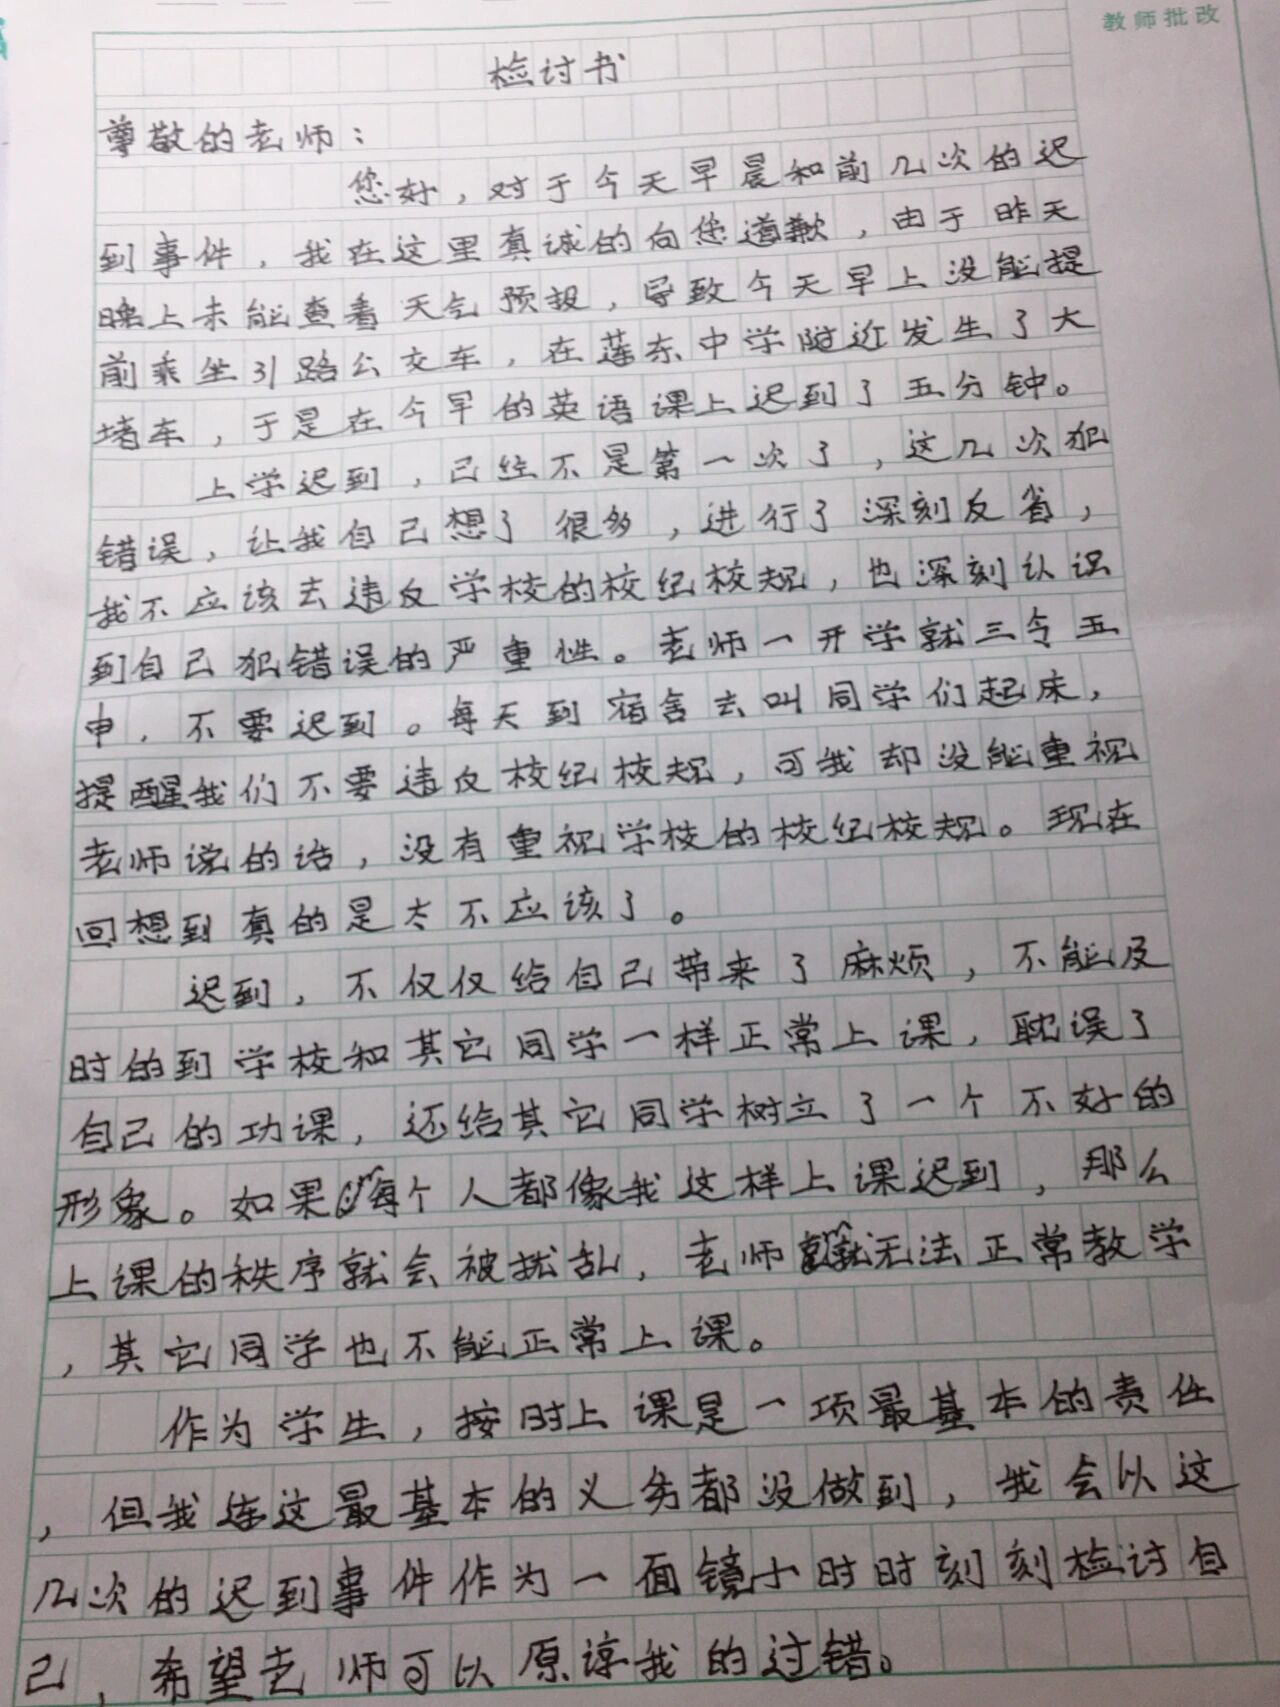 教师批改
检讨书
尊敬的老师：
您好，对于今天早晨和前几次的迟
到事件，我在这里真诚的向您道歉，由于昨天
晚上未能查看天气预报，导致今天早上没能提
前乘坐31路公交车，在莲东中学附近发生了大
堵车，于是在今早的英语课上迟到了五分钟。
上学迟到，己经不是第一次了，这几次犯
错误，让我自己想了很多，进行了深刻反省，
我不应该去违反学校的校纪校规，也深刻认识
到自己犯错误的严重性。老师一开学就三令五
申，不要迟到。每天到宿舍去叫同学们起床，
提醒我们不要违反校纪校规，可我却没能重视
老师说的话，没有重视学校的校纪校规。现在
回想到真的是太不应该了。
迟到，不仅仅给自己带来了麻烦，不能及
时的到学校和其它同学一样正常上课，耽误了
自己的功课，还给其它同学树立了一个不好的
形象。如果每个人都像我这样上课迟到，那么
上课的秩序就会被扰乱，老师就无法正常教学
，其它同学也不能正常上课。
作为学生，按时上课是一项最基本的责任
，但我连这最基本的义务都没做到，我会以这
几次的迟到事件作为一面镜小时时刻刻检讨自
己，希望老师可以原谅我的过错。